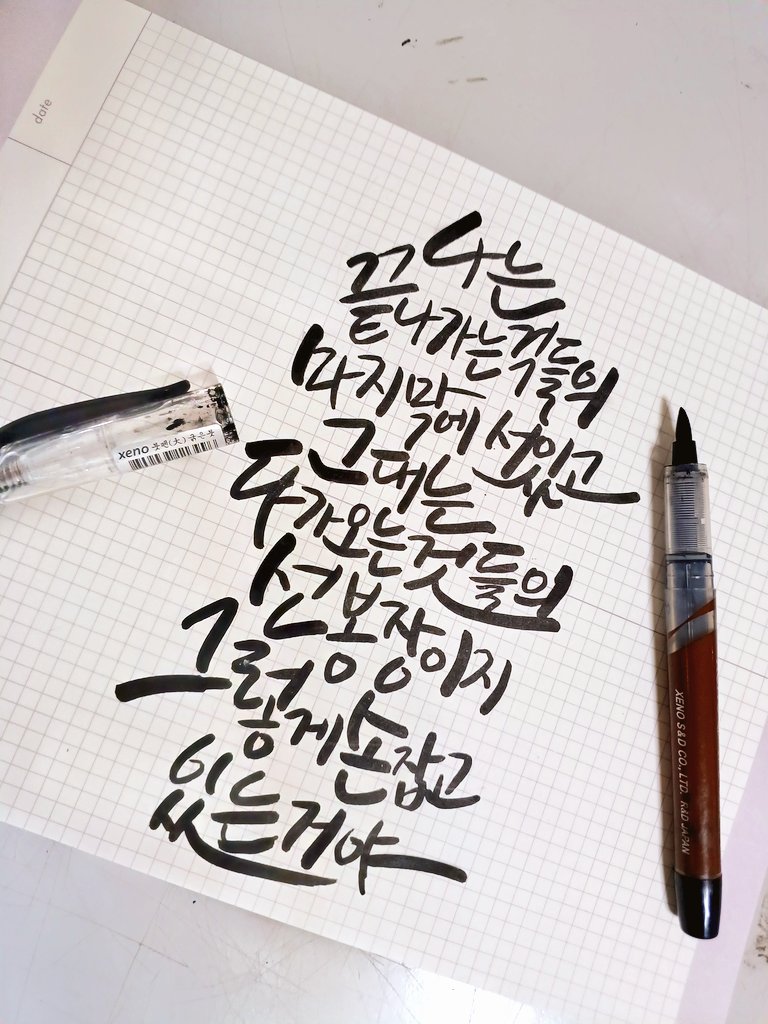 date
나는
끝나가는 것들의
마지막에 서있고
그대는
다가오는 것들의
선봉장이지
그렇게 손잡고
있는거야
xeno 붓펜(大) 굵은붓
XENO S&D CO., LTD. R&D JAPAN